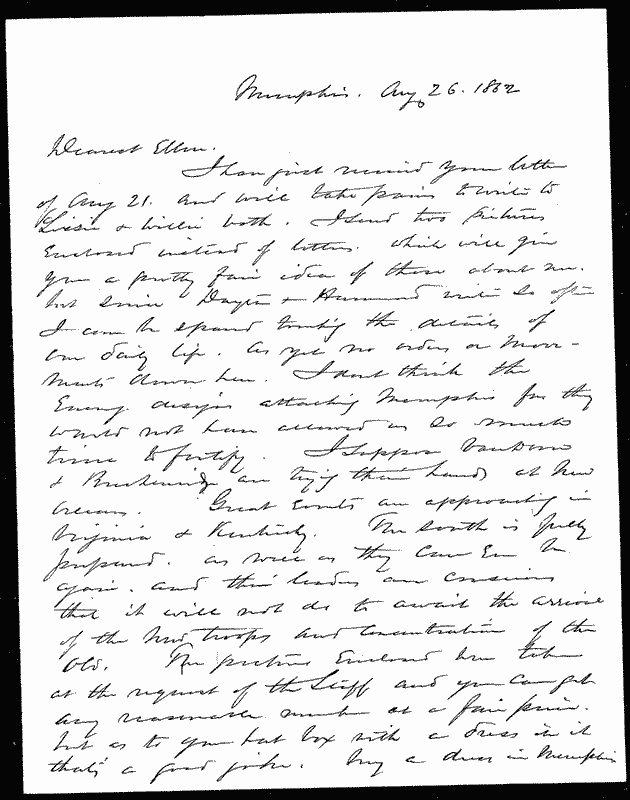 Memphis. Aug 26. 1862
Dearest Ellen.
I have just received your letter
of Aug 21. and will take pains to write to
Lizzie & Willie both. I send two pictures
Enclosed instead of letters. which will give
you a pretty fair idea of those about me.
but since Dayton & Hammond write so often
I can be spared writing the details of
our daily life. As yet no orders or move-
ments down here. I dont think the
Enemy designs attacking Memphis for they
would not have allowed us so much
time to fortify. I suppose Van Dorn
& Breckenridge are trying their hands at New
Orleans. Great Events are approaching in
Virginia & Kentucky. The South is fully
prepared. as well as they can Ever be
again. and their leaders are conscious
that it will not do to await the arrival
of the New troops and concentration of the
Old. The pictures Enclosed were taken
at the request of the Staff and you can get
any reasonable number at a fair price.
but as to your hat box with a dress in it
that's a good joke. buy a dress in Memphis